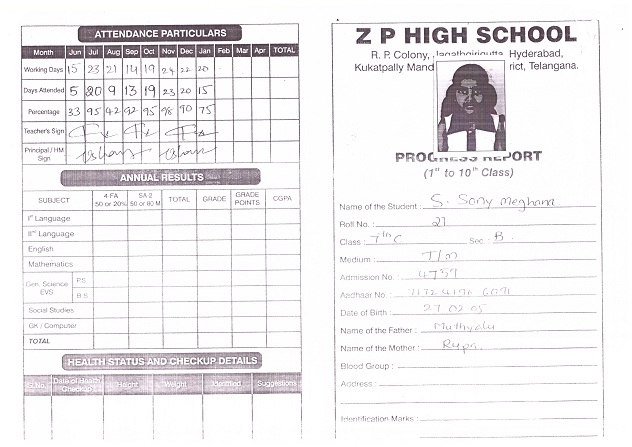 ATTENDANCE PARTICULARS
Month Jun Jul Aug Sep Oct Nov Dec Jan Feb Mar Apr TOTAL
Working Days 15 23 21 14 19 24 22 20
Days Attended 5 20 9 13 19 23 20 15
Percentage 33 95 42 92 95 98 90 75
Teacher's Sign
Principal / HM
Sign
ANNUAL RESULTS
SUBJECT 4 FA 50 or 20% SA 2 50 or 80 M TOTAL GRADE GRADE POINTS CGPA
Ist Language
IInd Language
English
Mathematics
Gen. Science EVS P.S
B.S
Social Studies
GK / Computer
TOTAL
HEALTH STATUS AND CHECKUP DETAILS
Sl.No. Date of Health Checkup's Height Weight Identified Suggestions
Z P HIGH SCHOOL
R. P. Colony, Hyderabad,
Kukatpally Mand rict, Telangana.
PROGRESS REPORT
(1st to 10th Class)
Name of the Student : S. Sony Meghana
Roll No. : 21
Class : 7th C Sec : B
Medium : T/m
Admission No. : 4757
Aadhaar No. :
Date of Birth : 27 02 05
Name of the Father : Muthyalu
Name of the Mother : Rupa
Blood Group :
Address :
Identification Marks :